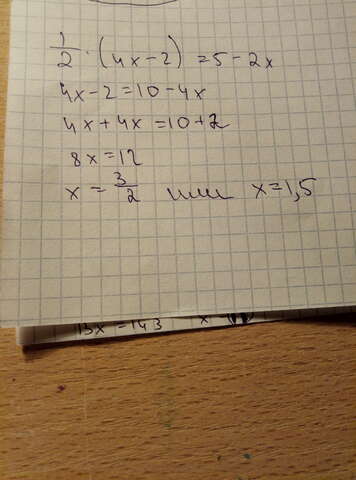 1/2 · (4x-2) = 5-2x
4x-2=10-4x
4x+4x=10+2
8x=12
x = 3/2 или x=1,5
13x=143 x